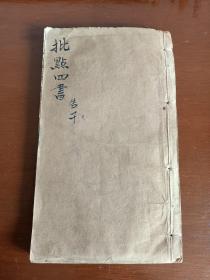 批點四書
告子